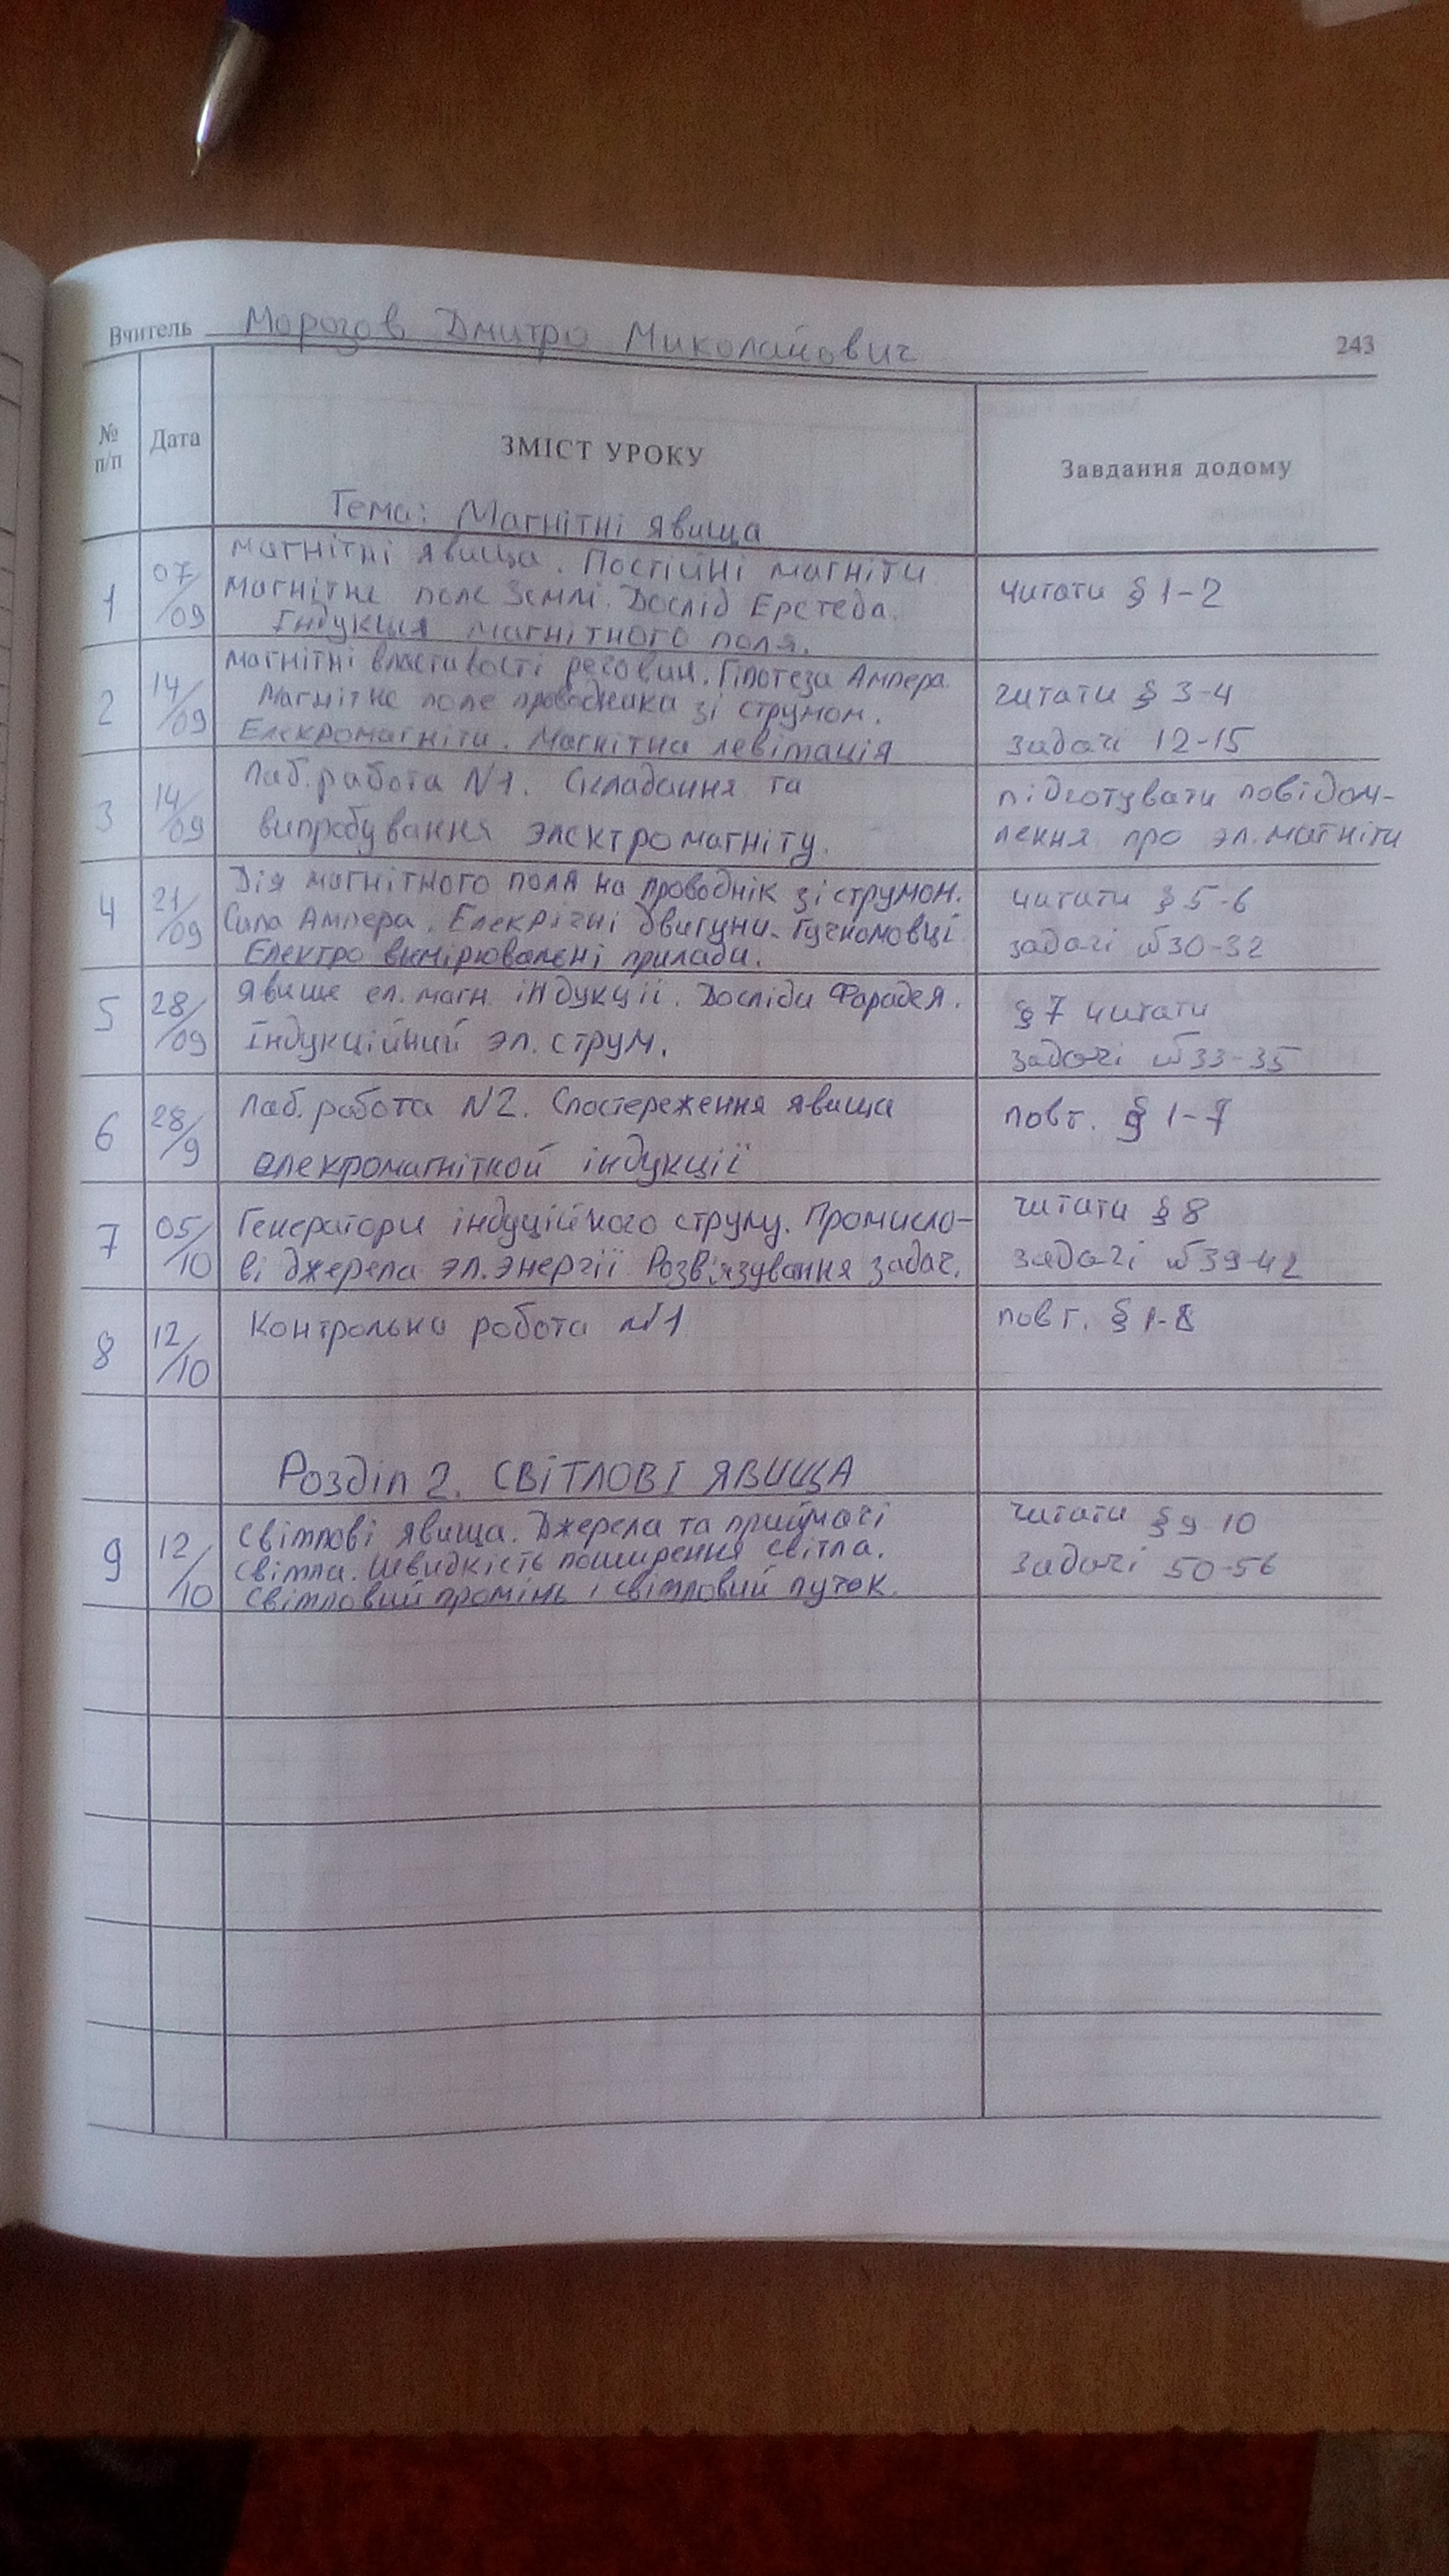 Вчитель Морозов Дмитро Миколайович
243
№ п/п
Дата
ЗМІСТ УРОКУ
Завдання додому
Тема: Магнітні явища
1
07/09
Магнітні явища. Постійні магніти
Магнітне поле Землі. Дослід Ерстеда.
Індукция магнітного поля.
читати § 1-2
2
14/09
Магнітні властивості речовин. Гіпотеза Ампера.
Магнітне поле проводника зі струмом.
Елекромагніти. Магнітна левітація
читати § 3-4
задачі 12-15
3
14/09
Лаб. работа №1. Складання та
випробування электромагніту.
підготувати повідом-
лення про эл. магніти
4
21/09
Дія магнітного поля на проводнік зі струмом.
Сила Ампера. Елекрічні двигуни. Гучномовці
Електро вимірювалєні прилади.
читати § 5-6
задачі №30-32
5
28/09
Явище ел. магн. індукціі. Досліди Фарадея.
Індукційний эл. струм.
§ 7 читати
задачі №33-35
6
28/9
Лаб. работа №2. Спостереження явища
елекромагнітной індукції
повт. § 1-7
7
05/10
Генератори індуційного струму. Промисло-
ві джерела эл. энергії Розв'язування задач.
читати § 8
задачі №39-42
8
12/10
Контролька робота №1
повт. § 1-8
Розділ 2. СВІТЛОВІ ЯВИЩА
9
12/10
Світлові явища. Джерела та приймачі
світла. Швидкість поширення світла.
Світловий промінь і світловий пучок.
читати § 9 10
задачі 50-56